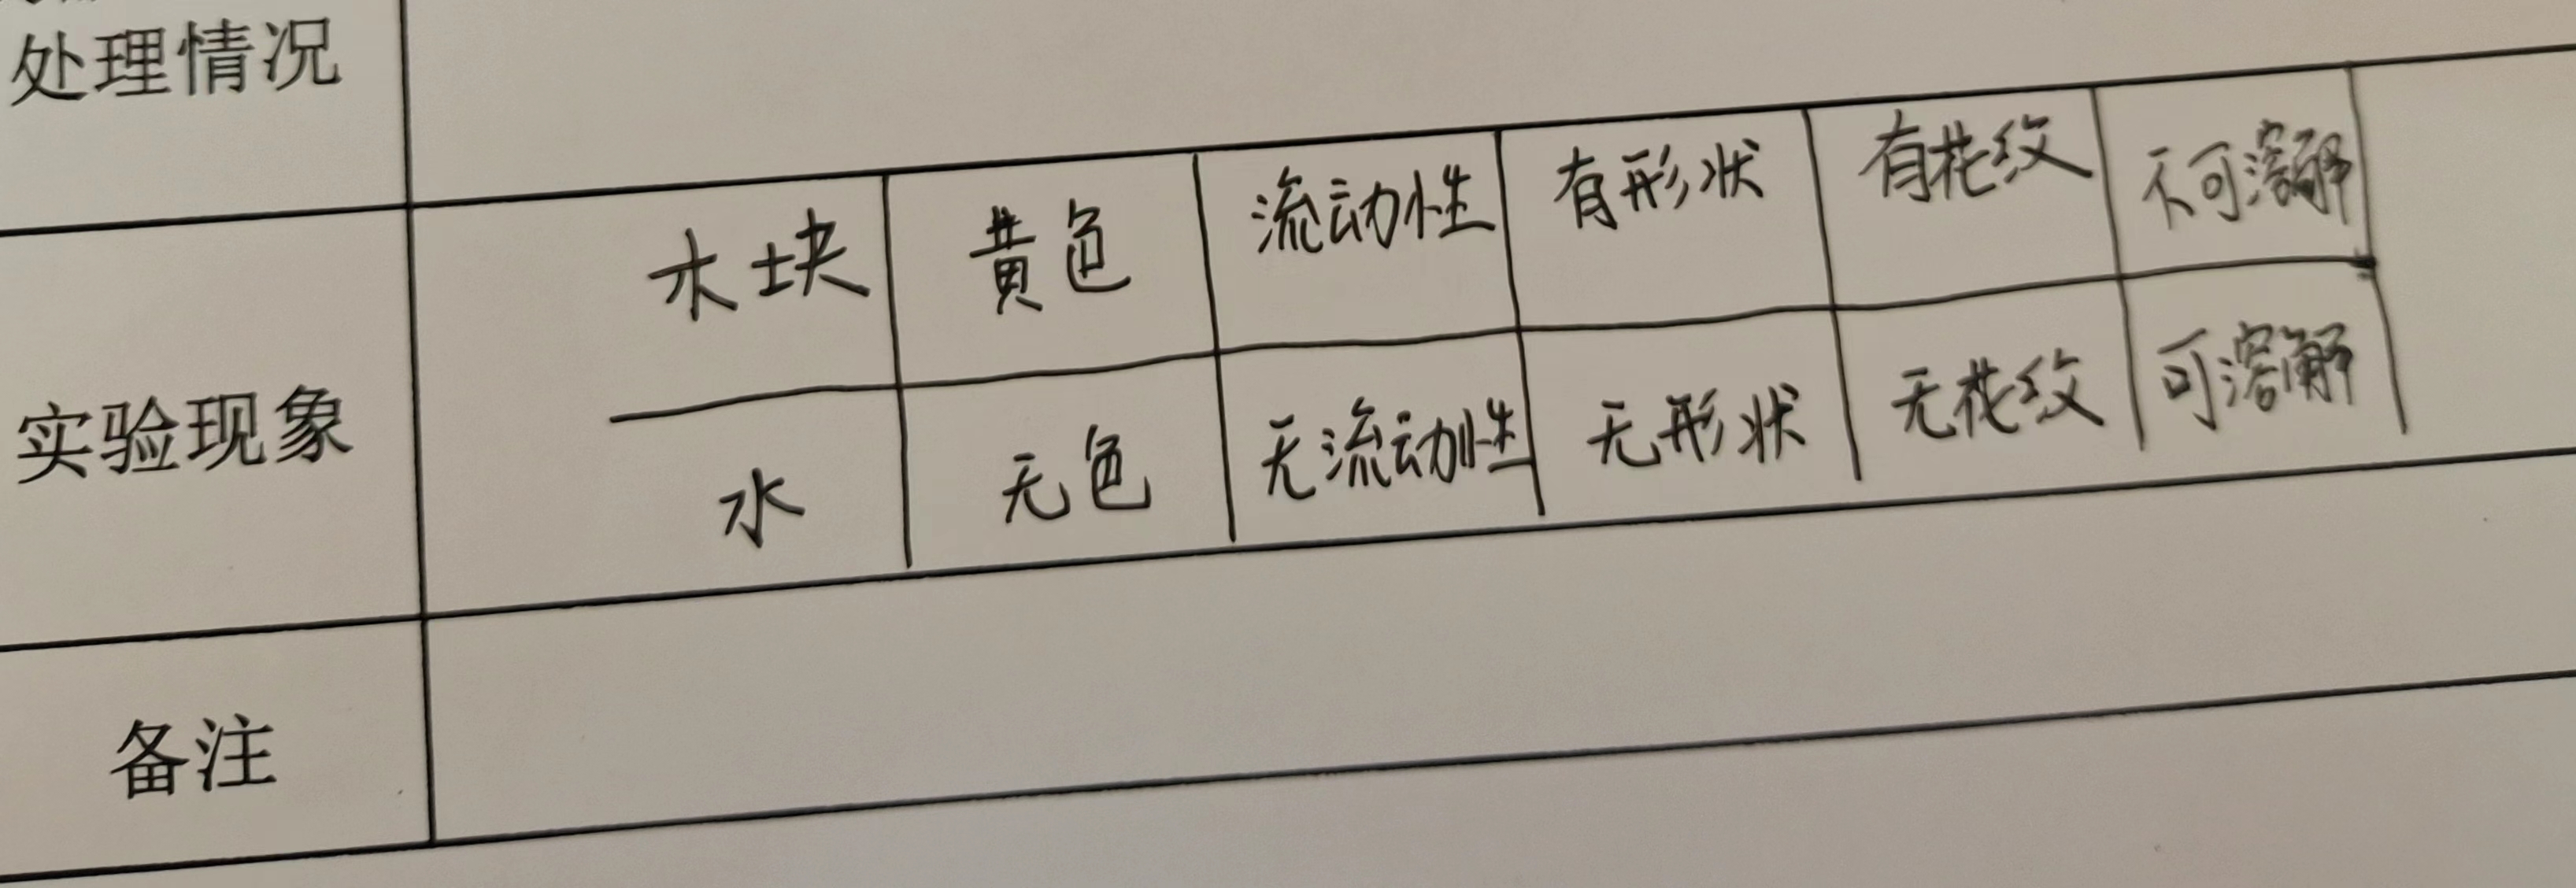 处理情况
木块 黄色 流动性 有形状 有花纹 不可溶解
实验现象
水 无色 无流动性 无形状 无花纹 可溶解
备注